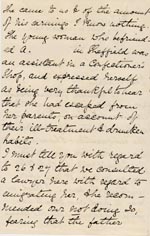 He came to us & of the amount
of his earnings I know nothing.
The young woman who befriend-
ed A. in Sheffield was
an assistant in a Confectioners
Shop, and expressed herself
as being very thankful to hear
that she had escaped from
her parents, on account of
their ill-treatment & drunken
habits.
I must tell you with regard
to 26 & 27 that we consulted
a lawyer here with regard to
emigrating her. He recom-
mended our not doing so,
fearing that the father